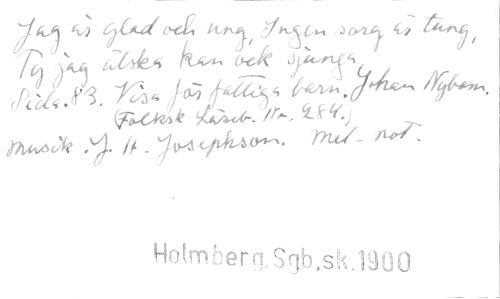 Jag är glad och ung, Ingen sorg är tung,
Ty jag älska kan och sjunga.
Sida. 83. Visa för fattiga barn. Johan Nybom.
(Folksk Läseb. Nr. 284.)
Musik. J. A. Josephson. Mel-not.
Holmberg,Sgb,sk.1900